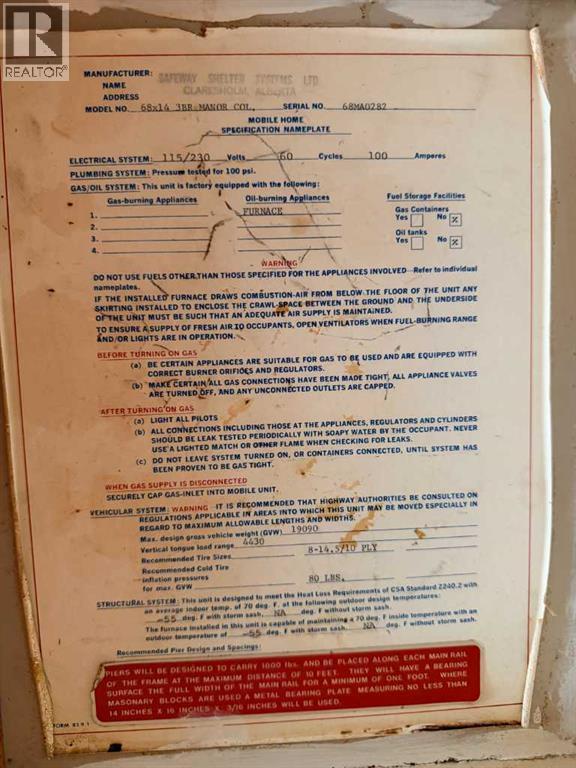 REALTOR®
MANUFACTURER:
NAME SAFEWAY SHELTER SYSTEMS LTD
ADDRESS CLARESHOLM, ALBERTA
MODEL NO. 68x14 3BR-MANOR COL. SERIAL NO. 68MA0282
MOBILE HOME
SPECIFICATION NAMEPLATE
ELECTRICAL SYSTEM: 115/230 Volts 60 Cycles 100 Amperes
PLUMBING SYSTEM: Pressure tested for 100 psi.
GAS/OIL SYSTEM: This unit is factory equipped with the following:
Gas-burning Appliances Oil-burning Appliances Fuel Storage Facilities
1. FURNACE Gas Containers
2. Yes No X
3. Oil tanks
4. Yes No X
WARNING
DO NOT USE FUELS OTHER THAN THOSE SPECIFIED FOR THE APPLIANCES INVOLVED - Refer to individual
nameplates.
IF THE INSTALLED FURNACE DRAWS COMBUSTION-AIR FROM BELOW THE FLOOR OF THE UNIT ANY
SKIRTING INSTALLED TO ENCLOSE THE CRAWL-SPACE BETWEEN THE GROUND AND THE UNDERSIDE
OF THE UNIT MUST BE SUCH THAT AN ADEQUATE AIR SUPPLY IS MAINTAINED.
TO ENSURE A SUPPLY OF FRESH AIR TO OCCUPANTS, OPEN VENTILATORS WHEN FUEL-BURNING RANGE
AND/OR LIGHTS ARE IN OPERATION.
BEFORE TURNING ON GAS
(a) BE CERTAIN APPLIANCES ARE SUITABLE FOR GAS TO BE USED AND ARE EQUIPPED WITH
CORRECT BURNER ORIFICES AND REGULATORS.
(b) MAKE CERTAIN ALL GAS CONNECTIONS HAVE BEEN MADE TIGHT, ALL APPLIANCE VALVES
ARE TURNED OFF, AND ANY UNCONNECTED OUTLETS ARE CAPPED.
AFTER TURNING ON GAS
(a) LIGHT ALL PILOTS
(b) ALL CONNECTIONS INCLUDING THOSE AT THE APPLIANCES, REGULATORS AND CYLINDERS
SHOULD BE LEAK TESTED PERIODICALLY WITH SOAPY WATER BY THE OCCUPANT. NEVER
USE A LIGHTED MATCH OR OTHER FLAME WHEN CHECKING FOR LEAKS.
(c) DO NOT LEAVE SYSTEM TURNED ON, OR CONTAINERS CONNECTED, UNTIL SYSTEM HAS
BEEN PROVEN TO BE GAS TIGHT.
WHEN GAS SUPPLY IS DISCONNECTED
SECURELY CAP GAS-INLET INTO MOBILE UNIT.
VEHICULAR SYSTEM: WARNING - IT IS RECOMMENDED THAT HIGHWAY AUTHORITIES BE CONSULTED ON
REGULATIONS APPLICABLE IN AREAS INTO WHICH THIS UNIT MAY BE MOVED ESPECIALLY IN
REGARD TO MAXIMUM ALLOWABLE LENGTHS AND WIDTHS.
Max. design gross vehicle weight (GVW) 19090
Vertical tongue load range 4430
Recommended Tire Sizes 8-14.5/10 PLY
Recommended Cold Tire
inflation pressures
for max. GVW 80 LBS.
STRUCTURAL SYSTEM: This unit is designed to meet the Heat Loss Requirements of CSA Standard Z240.2 with
an average indoor temp. of 70 deg. F. at the following outdoor design temperatures:
-55 deg. F with storm sash. NA deg. F without storm sash.
The furnace installed in this unit is capable of maintaining a 70 deg. F inside temperature with an
outdoor temperature of -55 deg. F with storm sash. NA deg. F without storm sash.
Recommended Pier Design and Spacings:
PIERS WILL BE DESIGNED TO CARRY 1800 lbs. AND BE PLACED ALONG EACH MAIN RAIL
OF THE FRAME AT THE MAXIMUM DISTANCE OF 10 FEET. THEY WILL HAVE A BEARING
SURFACE THE FULL WIDTH OF THE MAIN RAIL FOR A MINIMUM OF ONE FOOT. WHERE
MASONARY BLOCKS ARE USED A METAL BEARING PLATE MEASURING NO LESS THAN
14 INCHES X 16 INCHES X 3/16 INCHES WILL BE USED.
FORM